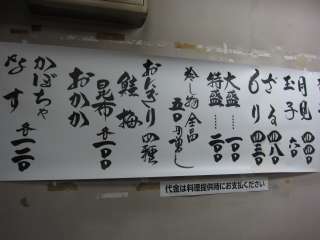 月見 四四〇
玉子 六〇
ざる 四八〇
もり 四三〇
大盛……一〇〇
特盛……二〇〇
冷し物全品
五〇円増し
おにぎり四種
鮭 梅
昆布 各一〇〇
おかか
かぼちゃ
なす 各一二〇
代金は料理提供時にお支払ください